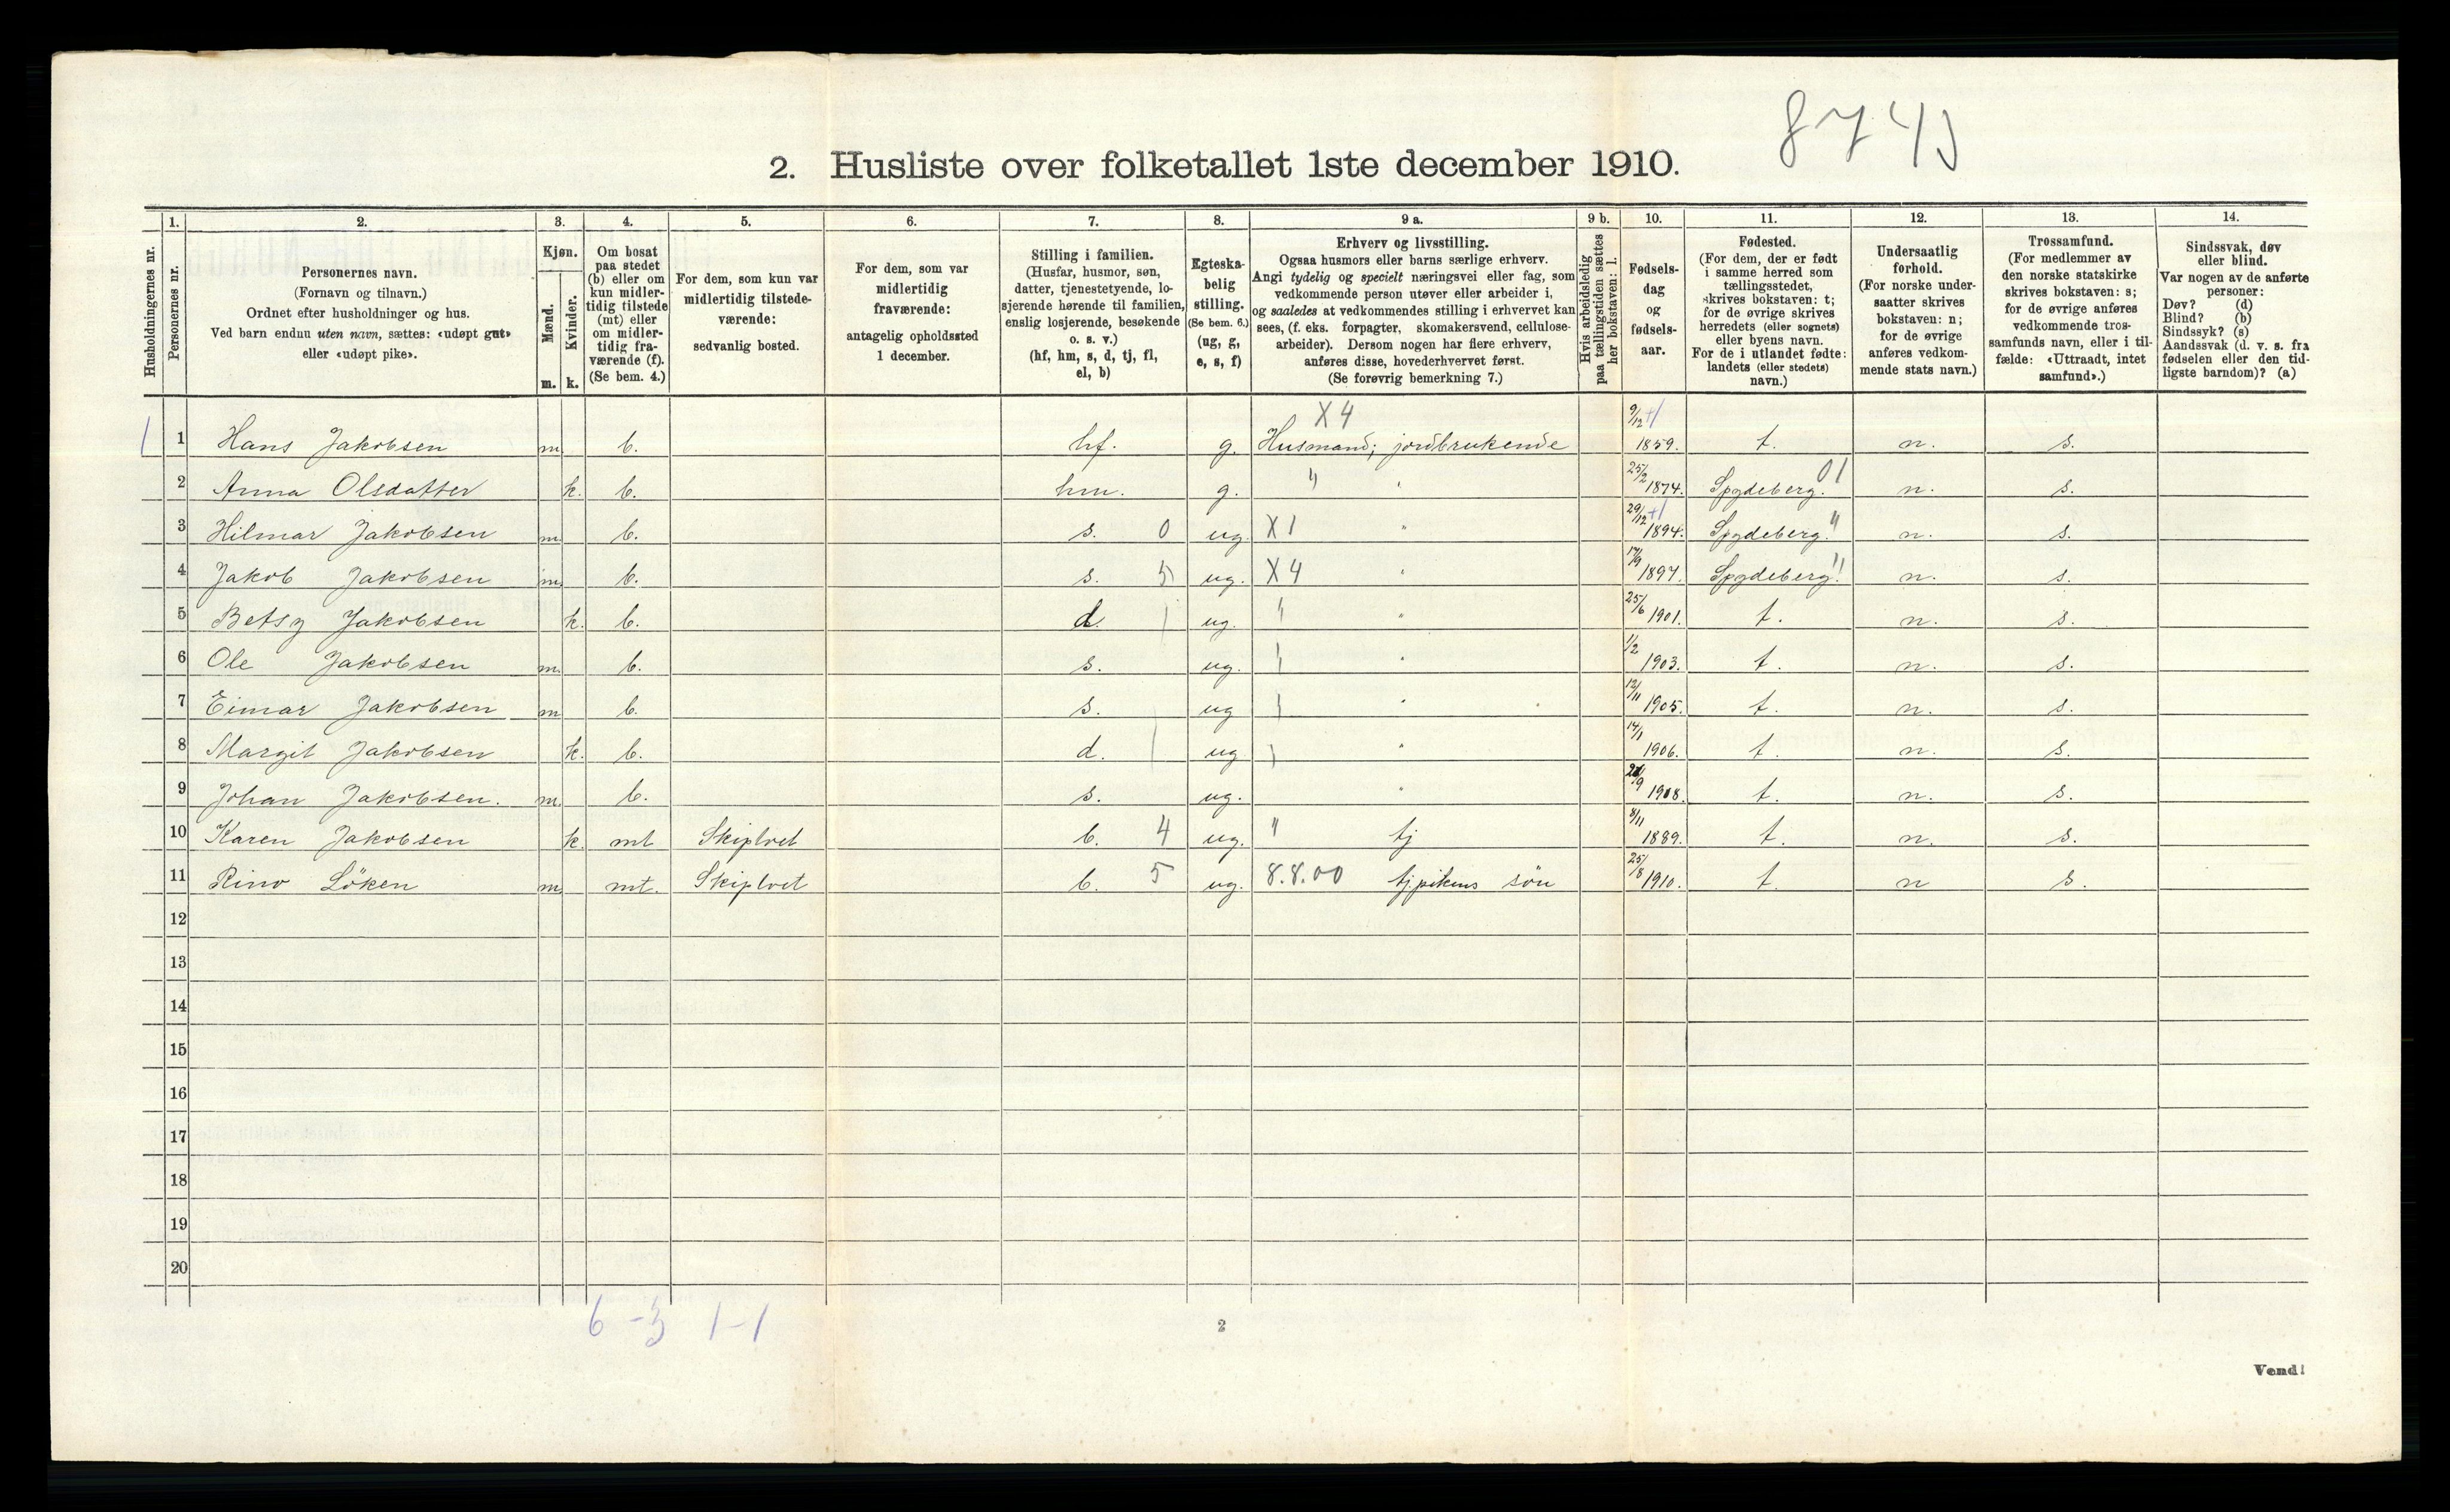 8745
2. Husliste over folketallet 1ste december 1910.
1. 2. 3. 4. 5. 6. 7. 8. 9 a. 9 b. 10. 11. 12. 13. 14.
Husholdningernes nr.
Personernes nr.
Personernes navn.
(Fornavn og tilnavn.)
Ordnet efter husholdninger og hus.
Ved barn endnu uten navn, sættes: «udøpt gut»
eller «udøpt pike».
Kjøn.
Mænd.
Kvinder.
m. k.
Om bosat
paa stedet
(b) eller om
kun midler-
tidig tilstede
(mt) eller
om midler-
tidig fra-
værende (f).
(Se bem. 4.)
For dem, som kun var
midlertidig tilstede-
værende:
sedvanlig bosted.
For dem, som var
midlertidig
fraværende:
antagelig opholdssted
1 december.
Stilling i familien.
(Husfar, husmor, søn,
datter, tjenestetyende, lo-
sjerende hørende til familien,
enslig losjerende, besøkende
o. s. v.)
(hf, hm, s, d, tj, fl,
el, b)
Egteska-
belig
stilling.
(Se bem. 6.)
(ug, g,
e, s, f)
Erhverv og livsstilling.
Ogsaa husmors eller barns særlige erhverv.
Angi tydelig og specielt næringsvei eller fag, som
vedkommende person utøver eller arbeider i,
og saaledes at vedkommendes stilling i erhvervet kan
sees, (f. eks. forpagter, skomakersvend, cellulose-
arbeider). Dersom nogen har flere erhverv,
anføres disse, hovederhvervet først.
(Se forøvrig bemerkning 7.)
Hvis arbeidsledig
paa tællingstiden sættes
her bokstaven: l.
Fødsels-
dag
og
fødsels-
aar.
Fødested.
(For dem, der er født
i samme herred som
tællingsstedet,
skrives bokstaven: t;
for de øvrige skrives
herredets (eller sognets)
eller byens navn.
For de i utlandet fødte:
landets (eller stedets)
navn.)
Undersaatlig
forhold.
(For norske under-
saatter skrives
bokstaven: n;
for de øvrige
anføres vedkom-
mende stats navn.)
Trossamfund.
(For medlemmer av
den norske statskirke
skrives bokstaven: s;
for de øvrige anføres
vedkommende tros-
samfunds navn, eller i til-
fælde: «Uttraadt, intet
samfund».)
Sindssvak, døv
eller blind.
Var nogen av de anførte
personer:
Døv? (d)
Blind? (b)
Sindssyk? (s)
Aandssvak (d. v. s. fra
fødselen eller den tid-
ligste barndom)? (a)
X 4 9/12 +1
1 1 Hans Jakobsen m. b. hf. g. Husmand; jordbrukende 1859. t. n. s.
2 Anna Olsdatter k. b. hm. g. " " 25/2 1874. Spydeberg. 01 n. s.
3 Hilmar Jakobsen m. b. s. 0 ug. X 1 " 29/12 +1 1894. Spydeberg. " n. s.
4 Jakob Jakobsen m. b. s. 5 ug. X 4 " 17/9 1897. Spydeberg. " n. s.
5 Betsy Jakobsen k. b. d. 1 ug. " " 25/6 1901. t. n. s.
6 Ole Jakobsen m. b. s. ug. " 1/2 1903. t. n. s.
7 Eimar Jakobsen m b. s. ug " 12/11 1905. t. n. s.
8 Margit Jakobsen k. b. d. 1 ug " 14/1 1906. t. n. s.
9 Johan Jakobsen. m. b. s. ug. " /9 1908. t. n. s.
10 Karen Jakobsen k. mt Skiptvet b. 4 ug. " tj 8/11 1889. t. n. s.
11 Rino Löken m mt. Skiptvet b. 5 ug. 8.8.00 tjpikens sön 25/8 1910. t. n s.
12
13
14
15
16
17
18
19
20
6 - 5 1 - 1
2
Vend!